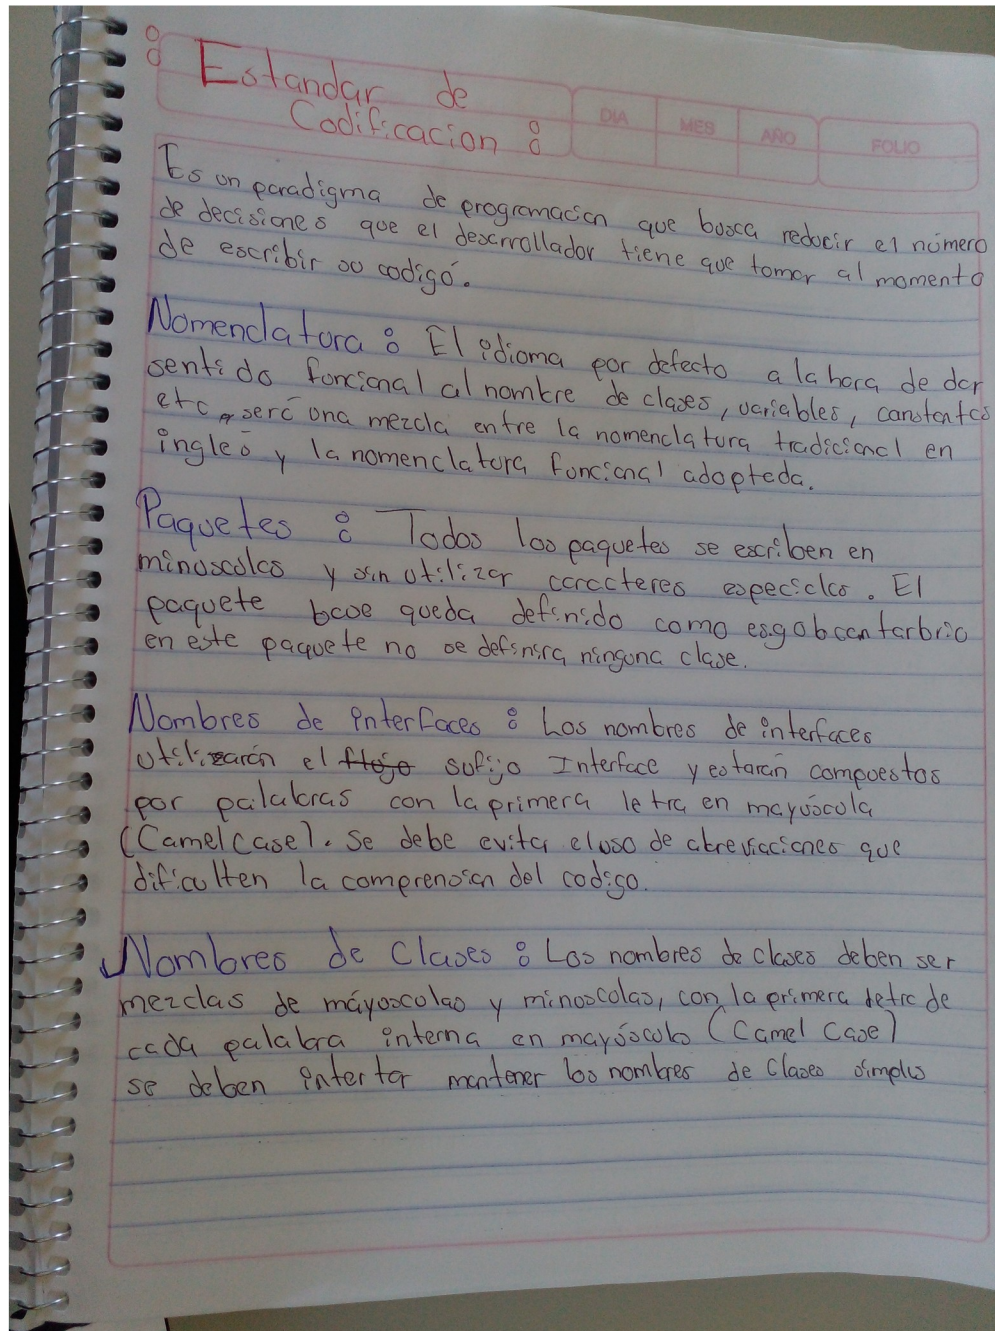 : Estandar de
Codificacion :
DIA MES AÑO FOLIO
Es un paradigma de programación que busca reducir el número
de decisiones que el desarrollador tiene que tomar al momento
de escribir su codigó.
Nomenclatura : El idioma por defecto a la hora de dar
sentido funcional al nombre de clases, variables, constantes
etc, será una mezcla entre la nomenclatura tradicional en
inglés y la nomenclatura funcional adoptada.
Paquetes : Todos los paquetes se escriben en
minusculas y sin utilizar caracteres especiales. El
paquete base queda definido como es.gobcantarbria
en este paquete no se definira ninguna clase.
Nombres de interfaces : Los nombres de interfaces
utilizarán el sufijo Interface y estarán compuestos
por palabras con la primera letra en mayúscula
(Camel Case). Se debe evitar el uso de abreviaciones que
dificulten la comprensión del codigo.
Nombres de Clases : Los nombres de clases deben ser
mezclas de máyusculas y minusculas, con la primera letra de
cada palabra interna en mayúscula (Camel Case)
se deben intertar mantener los nombres de Clases simples